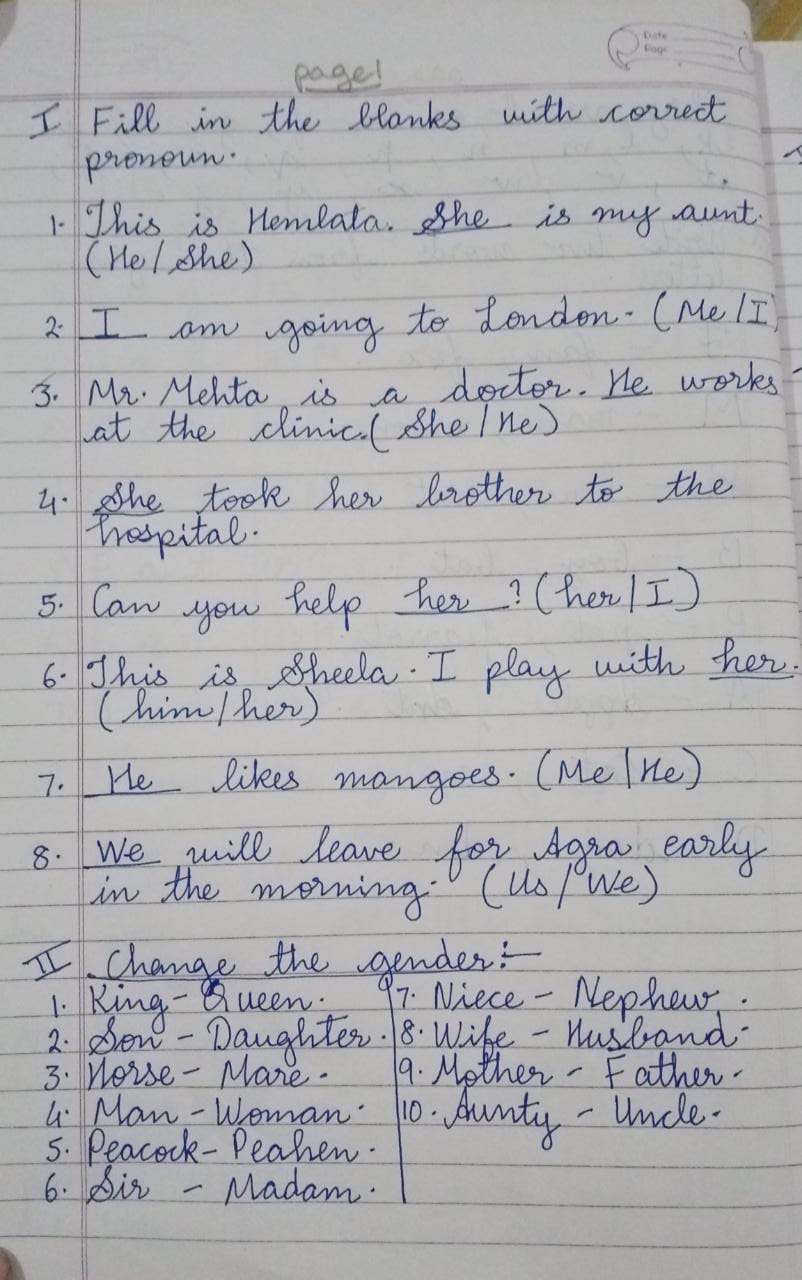 Date
Page
page1
I Fill in the blanks with correct
pronoun.
1. This is Hemlata. She is my aunt.
(He/She)
2. I am going to London. (Me/I)
3. Mr. Mehta is a doctor. He works
at the clinic. (She/He)
4. She took her brother to the
hospital.
5. Can you help her ? (her/I)
6. This is Sheela. I play with her.
(him/her)
7. He likes mangoes. (Me/He)
8. We will leave for Agra early
in the morning. (Us/We)
II Change the gender:-
1. King - Queen.
2. Son - Daughter.
3. Horse - Mare.
4. Man - Woman.
5. Peacock - Peahen.
6. Sir - Madam.
7. Niece - Nephew.
8. Wife - Husband.
9. Mother - Father.
10. Aunty - Uncle.